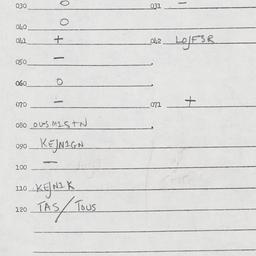 030 O 031 —
040 O
041 + 042 LO/F3R
050 —
060 O
070 — 071 +
080 OUSM1S+N
090 KE/N1GN
100 —
110 KE/N1K
120 TAS/TOUS